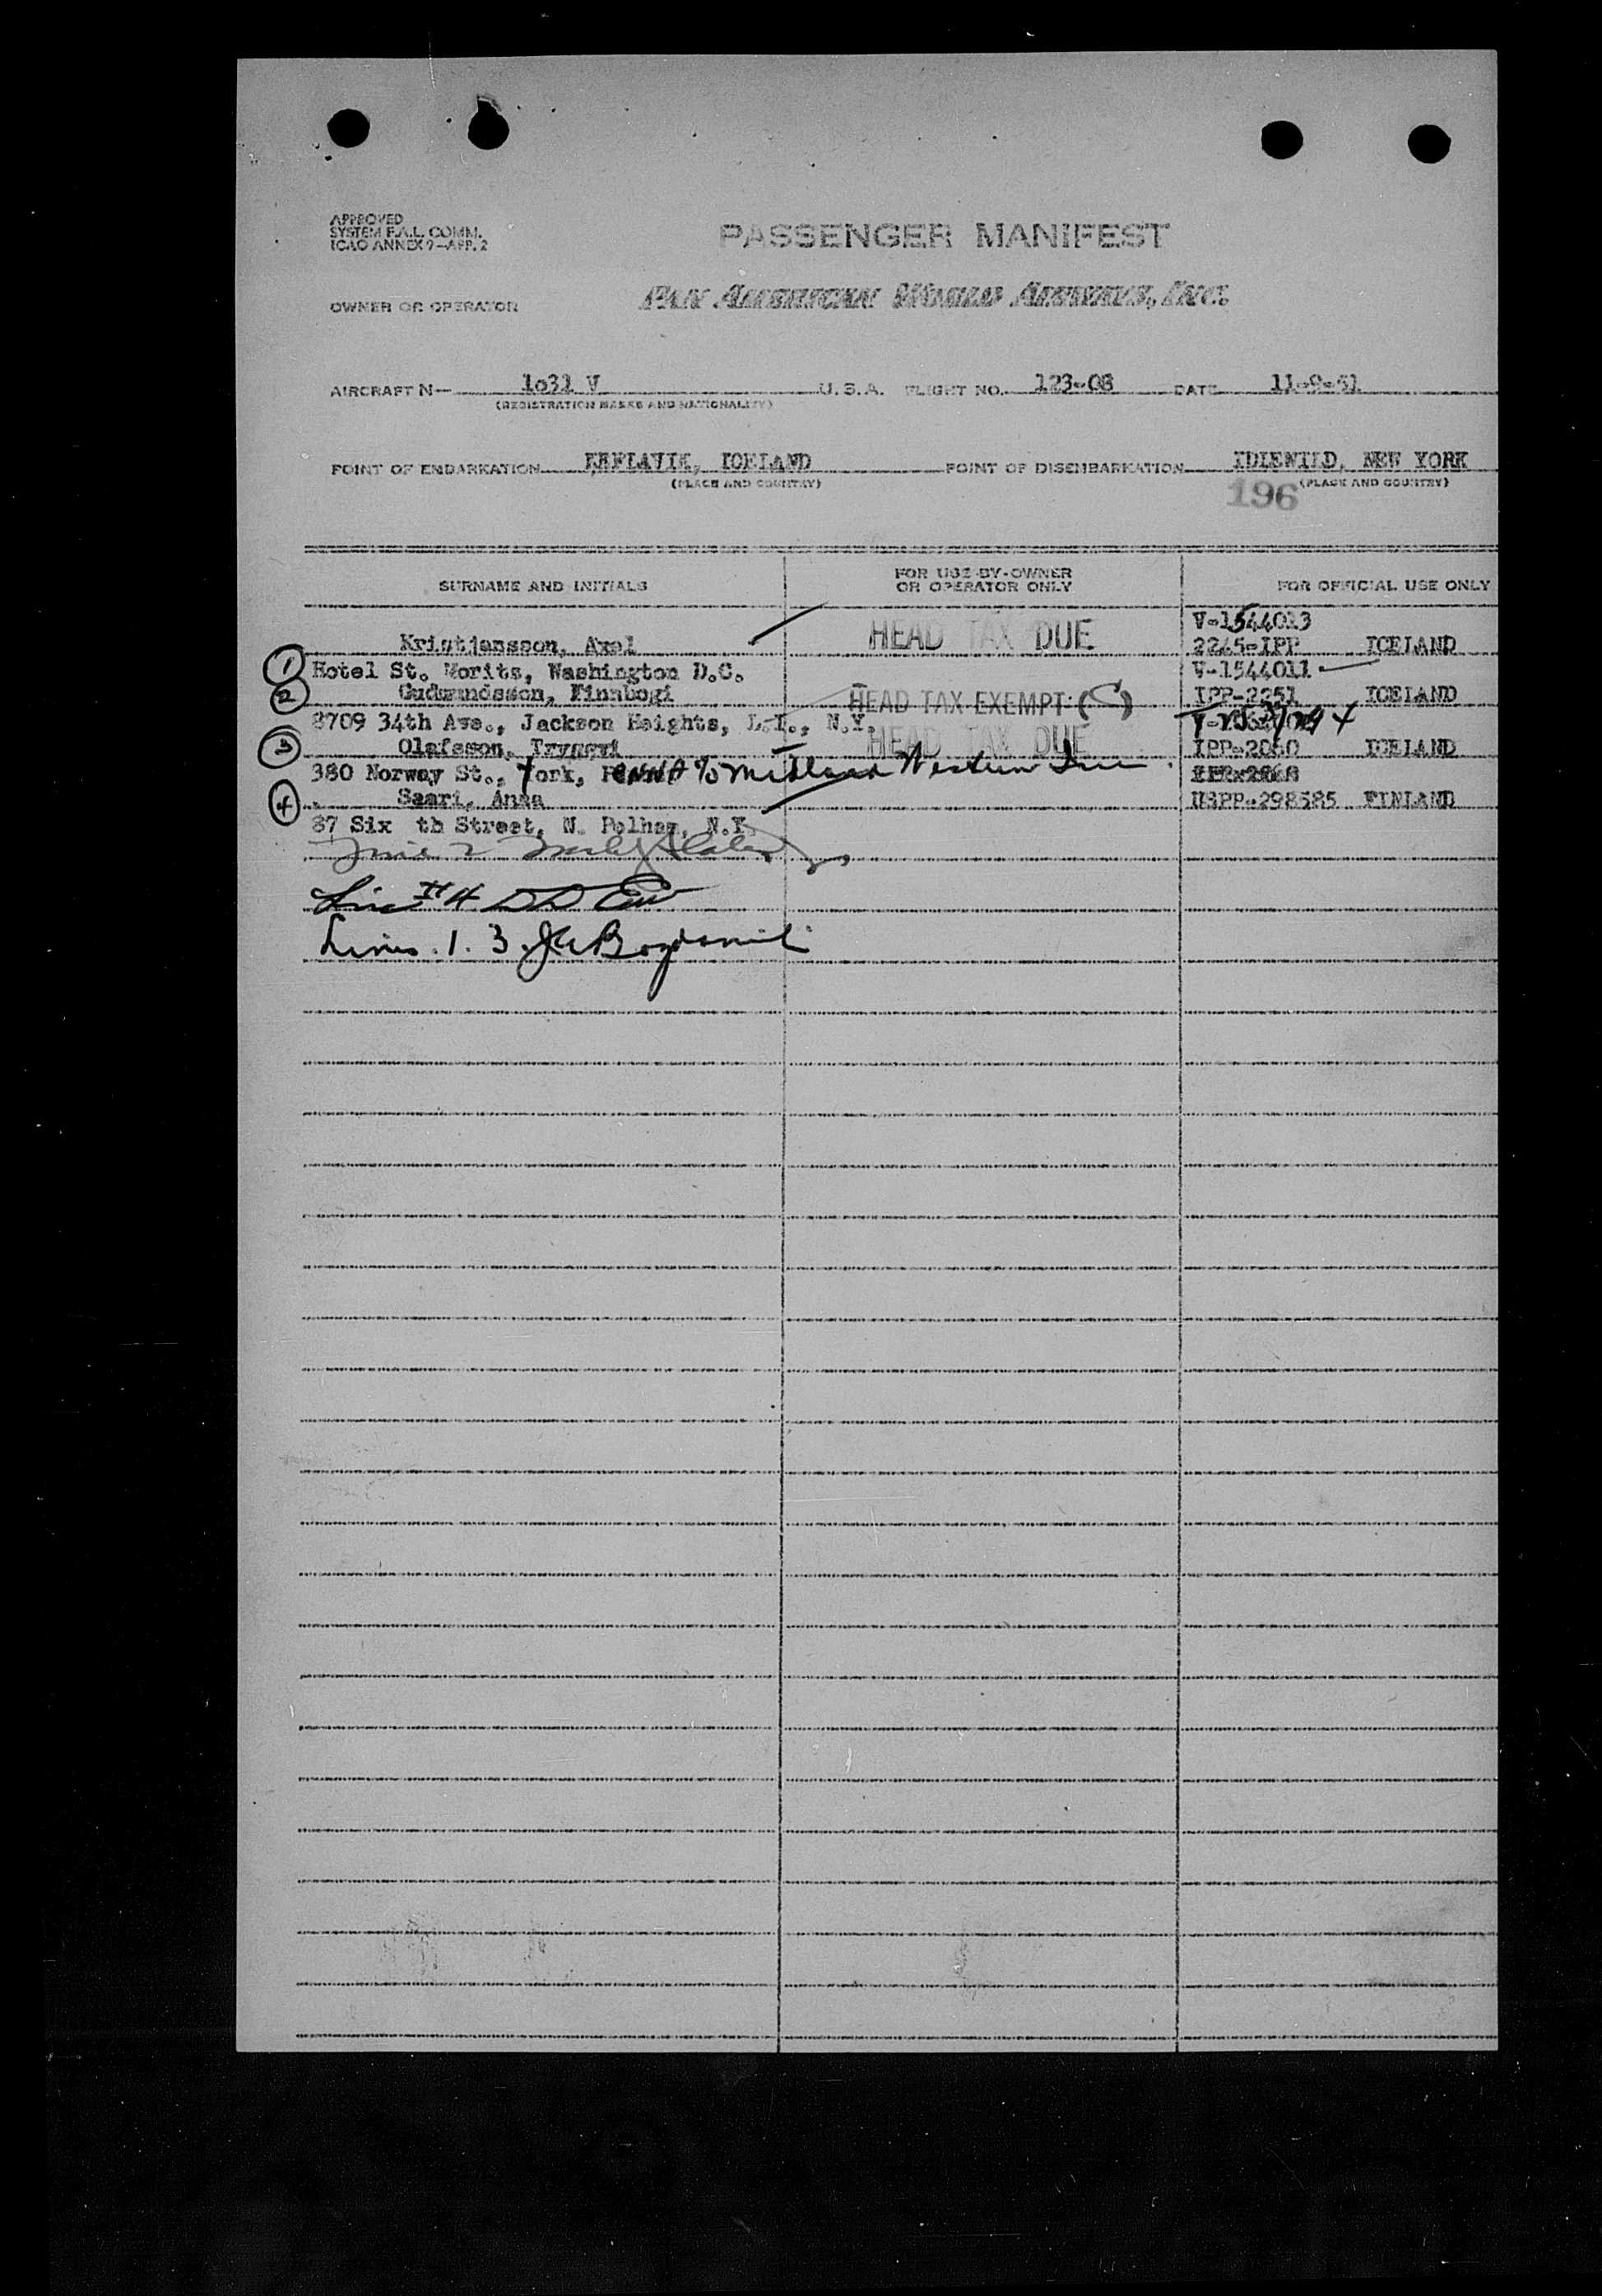 APPROVED
SYSTEM F.A.L. COMM.
ICAO ANNEX 9-APP. 2
PASSENGER MANIFEST
OWNER OR OPERATOR PAN AMERICAN WORLD AIRWAYS, INC.
AIRCRAFT N- 1o31 V U.S.A. FLIGHT NO. 123-08 DATE 11-9-51
(REGISTRATION MARKS AND NATIONALITY)
POINT OF EMBARKATION KEFLAVIK, ICELAND POINT OF DISEMBARKATION IDLEWILD, NEW YORK
(PLACE AND COUNTRY) (PLACE AND COUNTRY)
196
SURNAME AND INITIALS FOR USE BY OWNER OR OPERATOR ONLY FOR OFFICIAL USE ONLY
V-1544013
Kristjansson, Axel HEAD TAX DUE 2245-IPP ICELAND
1 Hotel St. Morits, Washington D.C. V-1544011
2 Gudmundsson, Finnbogi HEAD TAX EXEMPT (C) IPP-2251 ICELAND
8709 34th Ave., Jackson Heights, L.I., N.Y.
3 Olafsson, Tryggvi HEAD TAX DUE IPP-2060 ICELAND
380 Norway St., York, Penna % Midland Western Inc.
4 Saari, Anna USPP-298585 FINLAND
87 Six th Street, N. Pelham, N.Y.
Line 2
Line #4
Lines 1. 3.